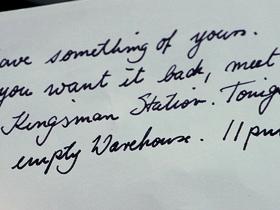 ave something of yours.
you want it back, meet
Kingsman Station. Tonig
empty Warehouse. 11pm